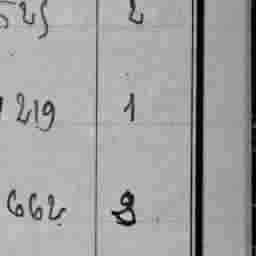 525 2
219 1
662 3